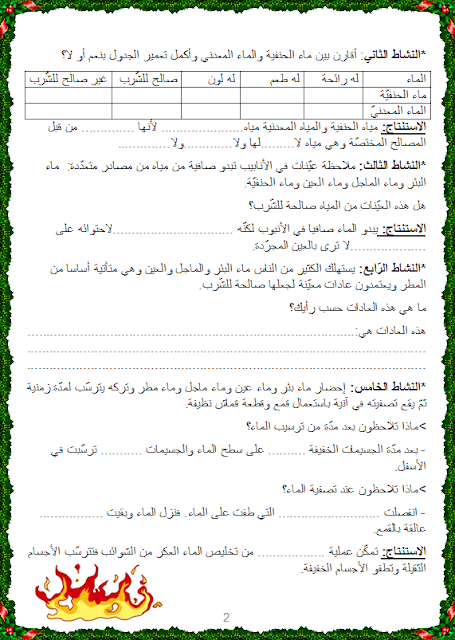 *النشاط الثاني: أقارن بين ماء الحنفية والماء المعدني وأكمل تعمير الجدول بنعم أو لا؟
الماء له رائحة له طعم له لون صالح للشّرب غير صالح للشّرب
ماء الحنفيّة
الماء المعدنيّ
الاستنتاج: مياه الحنفية والمياه المعدنية مياه.................. لأنها ............ من قبل
المصالح المختصّة وهي مياه لا........لها ولا..........ولا..........
*النشاط الثالث: ملاحظة عيّنات في الأنابيب تبدو صافية من مياه من مصادر متعدّدة: ماء
البئر وماء الماجل وماء العين وماء الحنفيّة.
هل هذه العيّنات من المياه صالحة للشّرب؟
الاستنتاج: يبدو الماء صافيا في الأنبوب لكنّه ....................لاحتوائه على
..................لا ترى بالعين المجرّدة.
*النشاط الرّابع: يستهلك الكثير من الناس ماء البئر والماجل والعين وهي متأتية أساسا من
المطر ويعتمدون عادات معيّنة لجعلها صالحة للشّرب.
ما هي هذه العادات حسب رأيك؟
هذه العادات هي:............................................................
........................................................................
........................................................................
*النشاط الخامس: إحضار ماء بئر وماء عين وماء ماجل وماء مطر وتركه يترسّب لمدّة زمنية
ثمّ يقع تصفيته في آنية باستعمال قمع وقطعة قماش نظيفة.
>ماذا تلاحظون بعد مدّة من ترسيب الماء؟
- بعد مدّة الجسيمات الخفيفة .......... على سطح الماء والجسيمات ............ ترسّبت في
الأسفل.
>ماذا تلاحظون عند تصفية الماء؟
- انفصلت .............. التي طفت على الماء. فنزل الماء وبقيت ................
عالقة بالقمع.
الاستنتاج: تمكّن عملية ................ من تخليص الماء العكر من الشوائب فتترسّب الأجسام
الثقيلة وتطفو الأجسام الخفيفة.
2